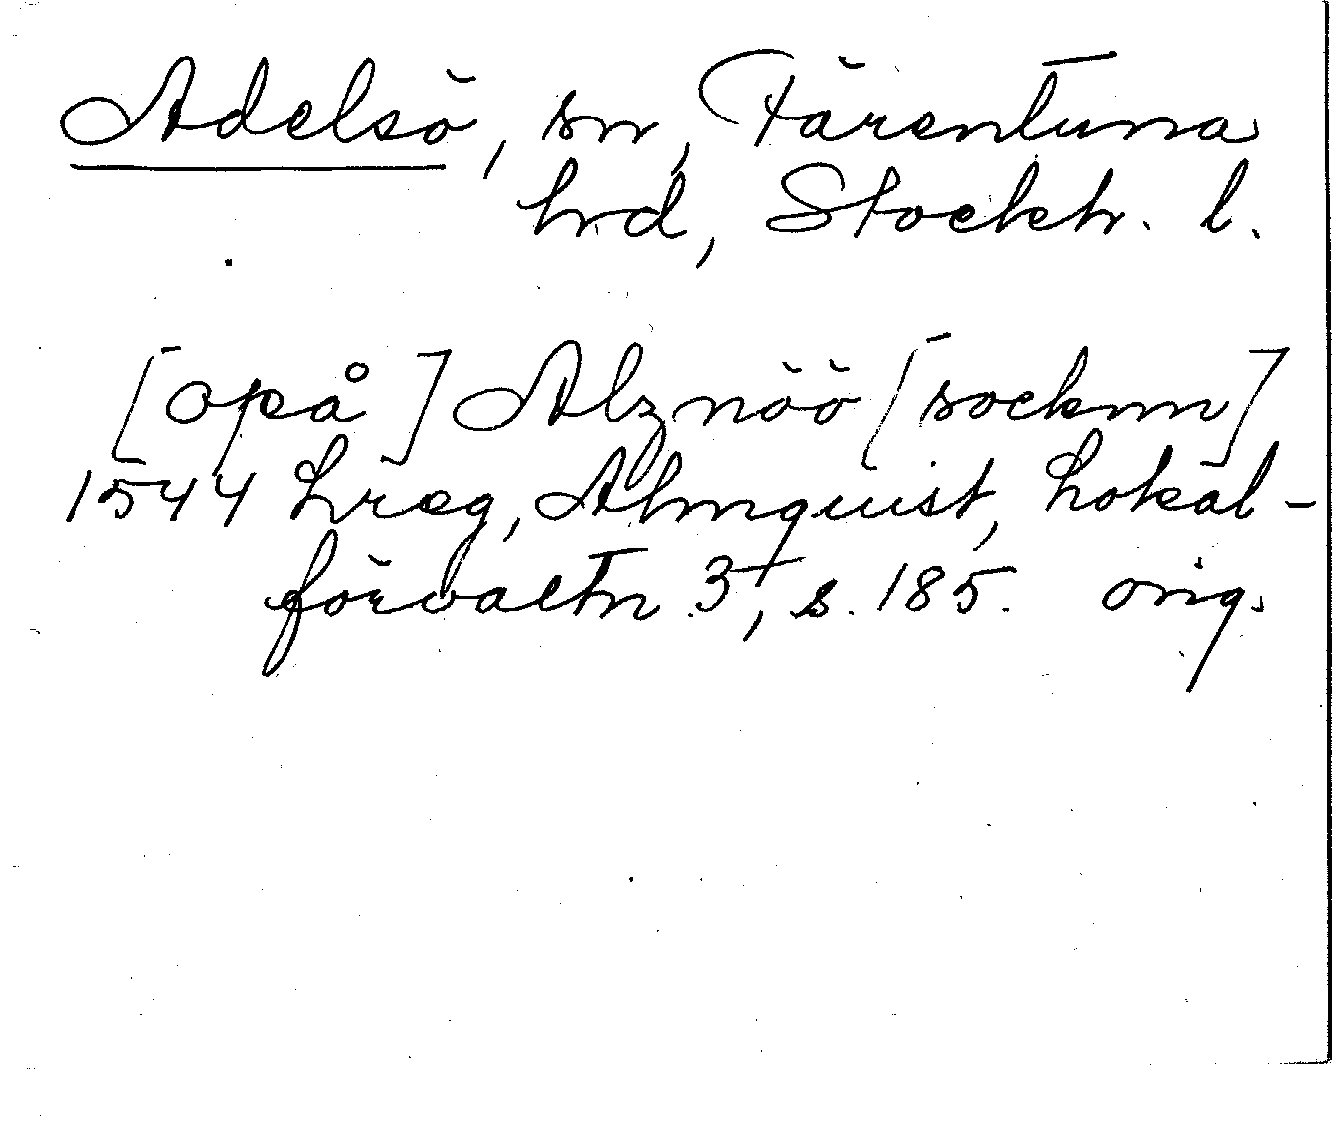 Adelsö, sn, Färentuna
hrd, Stockh. l.
[opå] Alznöö [socknn]
1544 Lræg, Almquist, Lokal-
förvaltn 3, s. 185. orig.